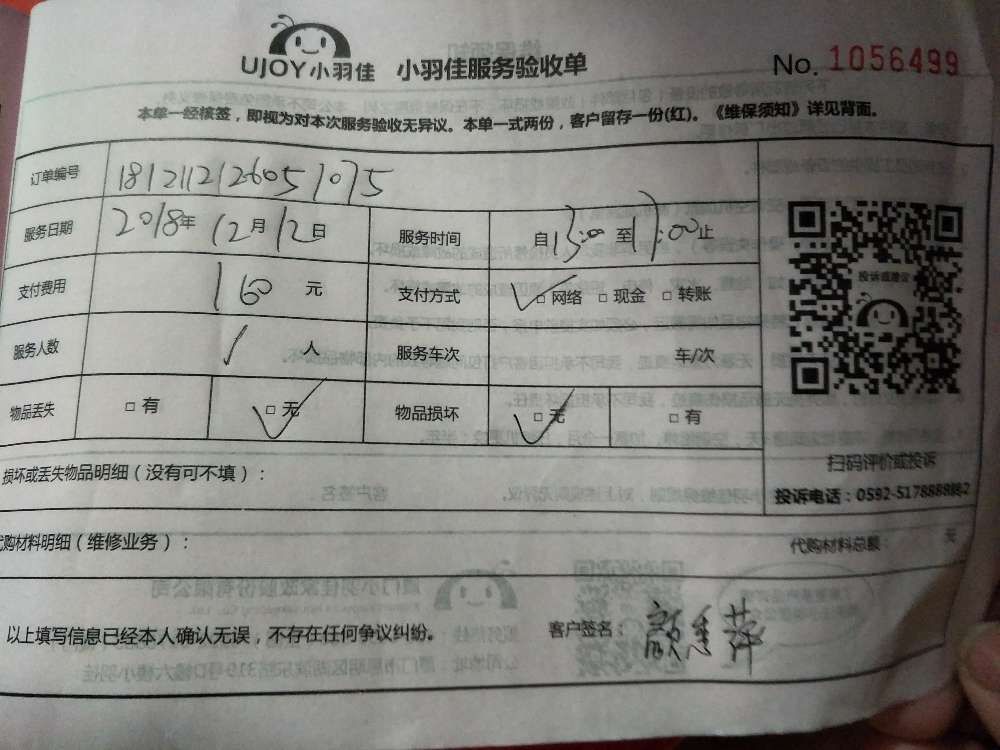 UJOY小羽佳 小羽佳服务验收单 No. 1056499
本单一经核签，即视为对本次服务验收无异议。本单一式两份，客户留存一份(红)。《维保须知》详见背面。
订单编号 181211212605 1075
服务日期 2018年12月12日 服务时间 自13:00至17:00止
支付费用 160 元 支付方式 □网络 □现金 □转账
投诉或建议
服务人数 1 人 服务车次 车/次
物品丢失 □有 □无 物品损坏 □无 □有
扫码评价或投诉
损坏或丢失物品明细（没有可不填）：
投诉电话：0592-5178888转2
代购材料明细（维修业务）：
代购材料总额： 元
以上填写信息已经本人确认无误，不存在任何争议纠纷。 客户签名：